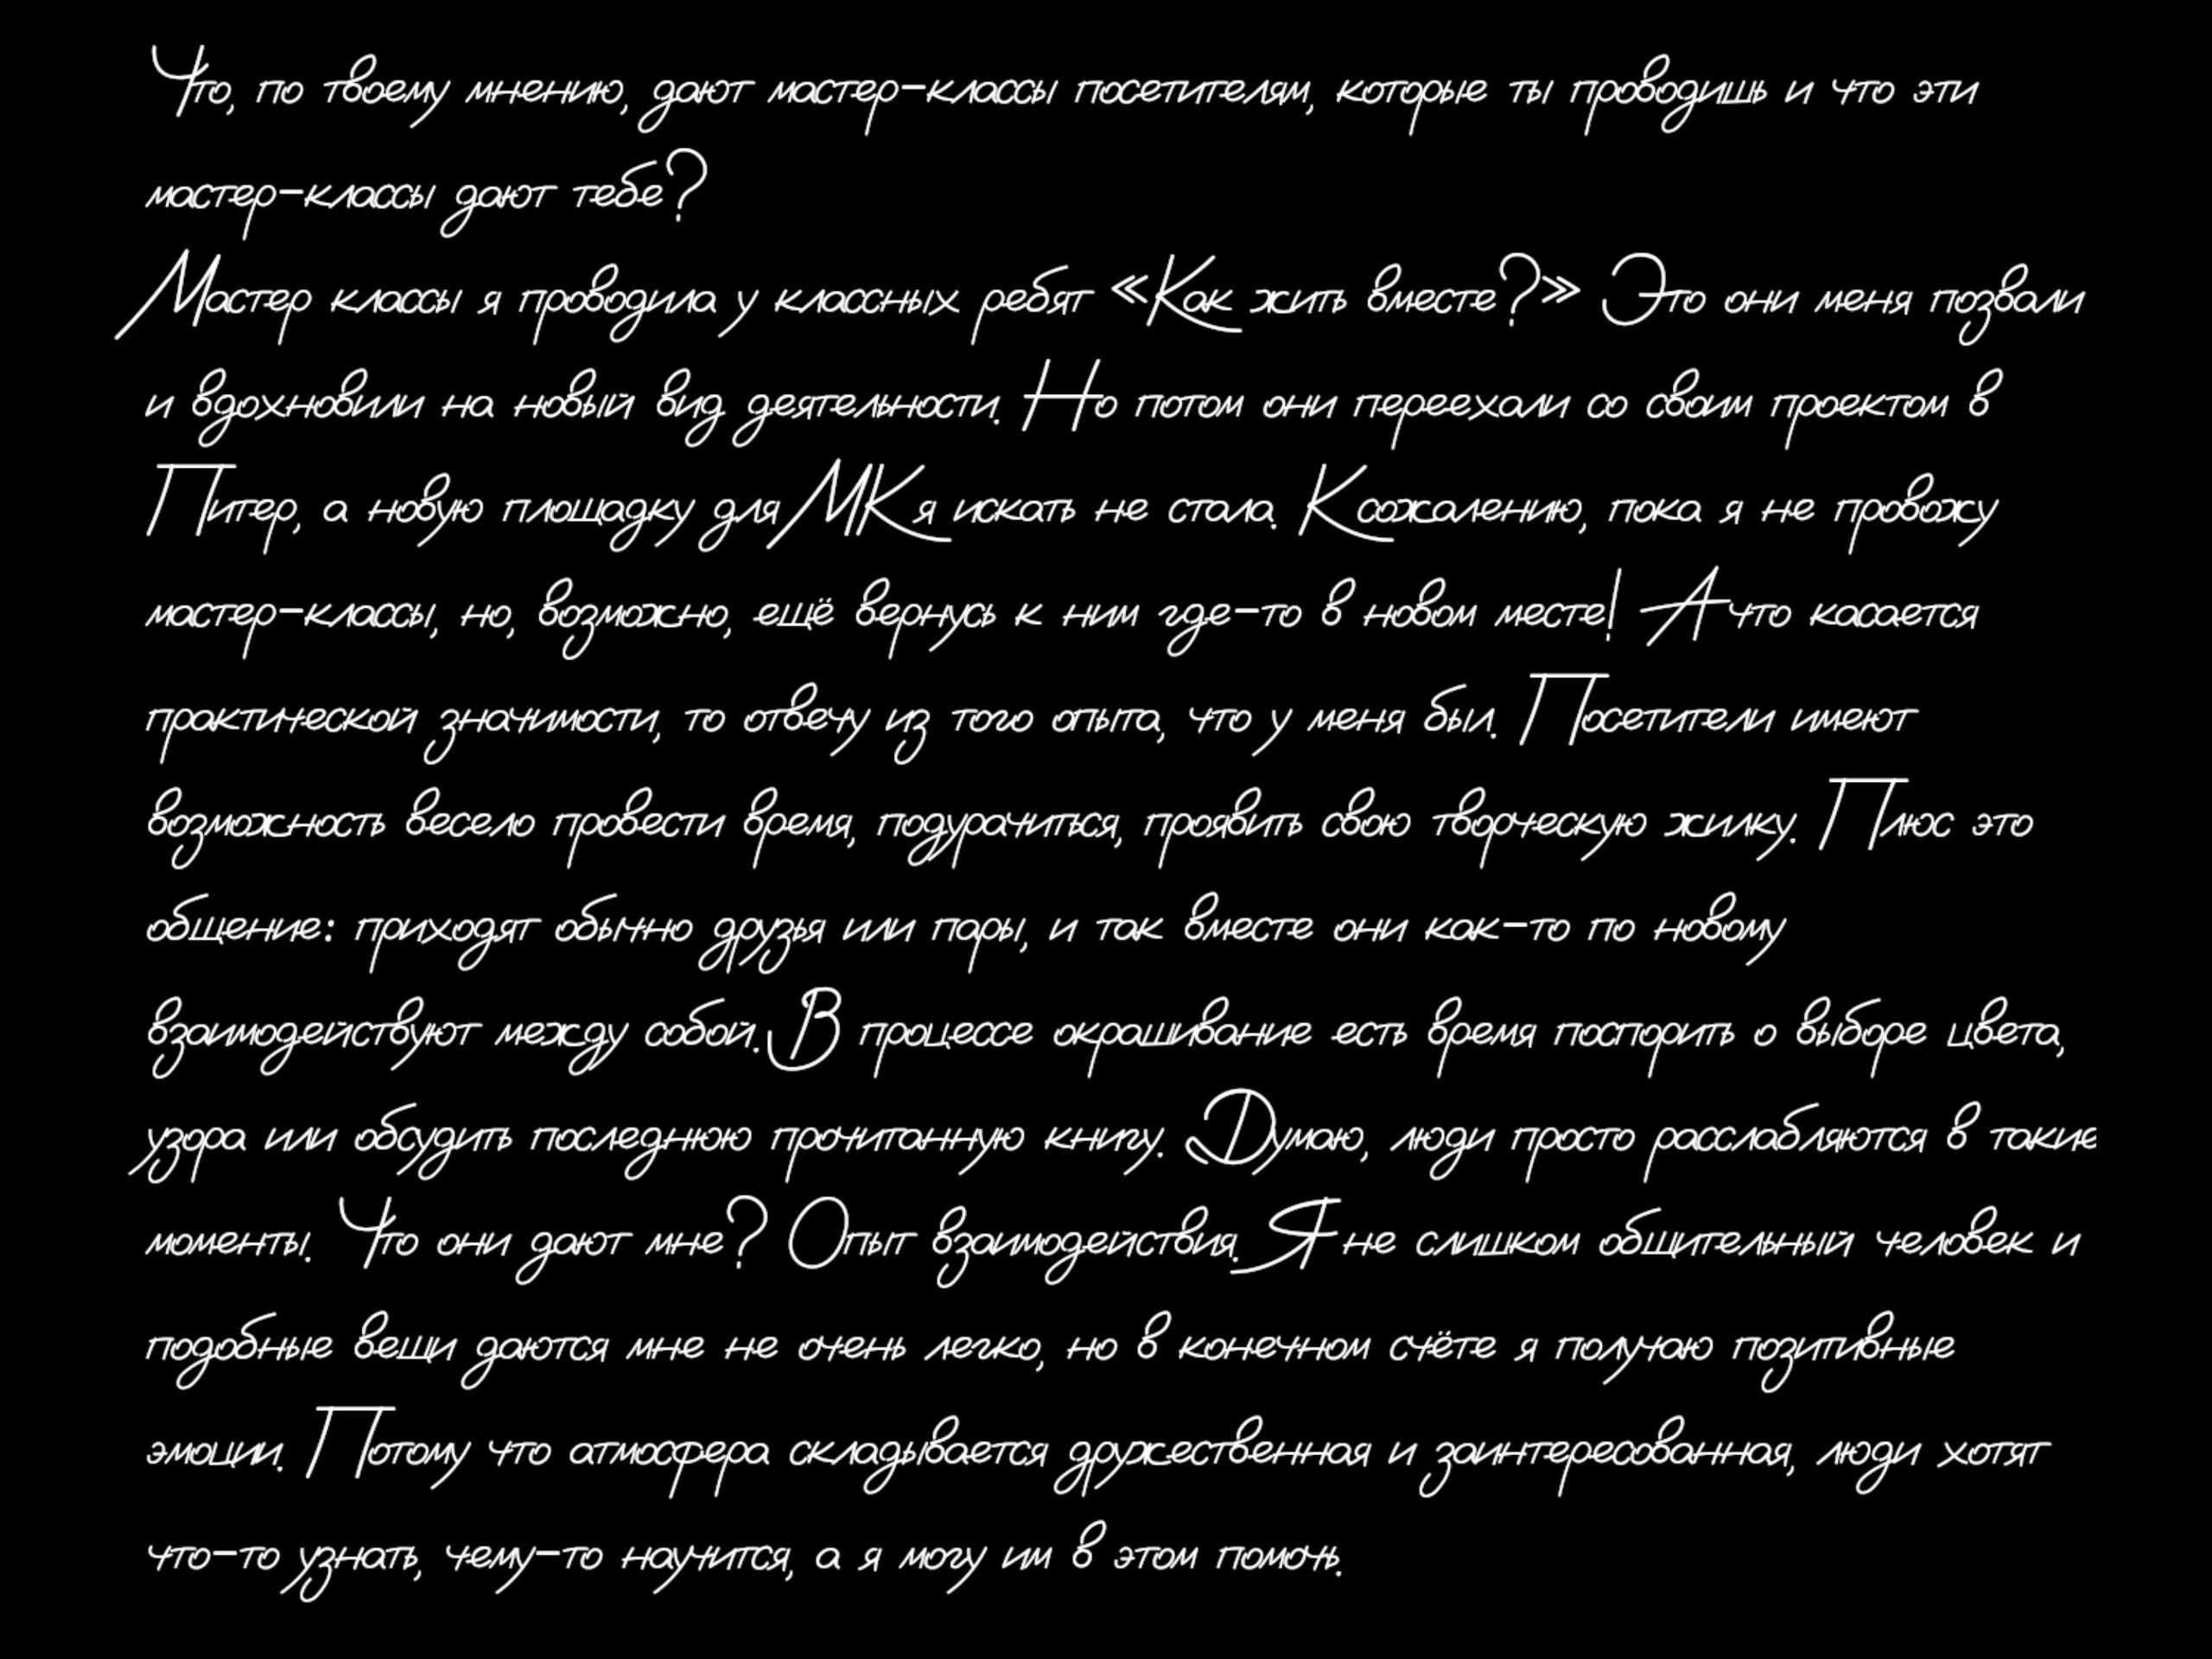 Что, по твоему мнению, дают мастер-классы посетителям, которые ты проводишь и что эти
мастер-классы дают тебе?
Мастер классы я проводила у классных ребят «Как жить вместе?» Это они меня позвали
и вдохновили на новый вид деятельности. Но потом они переехали со своим проектом в
Питер, а новую площадку для МК я искать не стала. К сожалению, пока я не провожу
мастер-классы, но, возможно, ещё вернусь к ним где-то в новом месте! А что касается
практической значимости, то отвечу из того опыта, что у меня был. Посетители имеют
возможность весело провести время, подурачиться, проявить свою творческую жилку. Плюс это
общение: приходят обычно друзья или пары, и так вместе они как-то по новому
взаимодействуют между собой. В процессе окрашивание есть время поспорить о выборе цвета,
узора или обсудить последнюю прочитанную книгу. Думаю, люди просто расслабляются в такие
моменты. Что они дают мне? Опыт взаимодействия. Я не слишком общительный человек и
подобные вещи даются мне не очень легко, но в конечном счёте я получаю позитивные
эмоции. Потому что атмосфера складывается дружественная и заинтересованная, люди хотят
что-то узнать, чему-то научится, а я могу им в этом помочь.